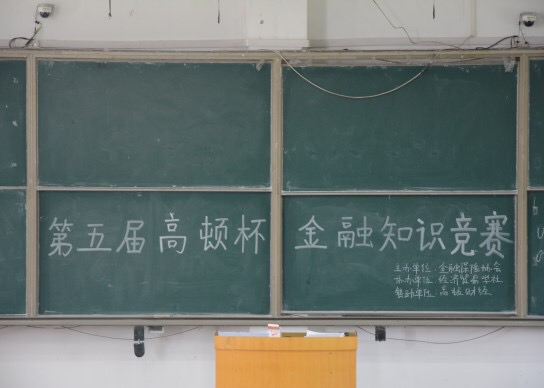 第五届高顿杯 金融知识竞赛
主办单位 金融保险协会
协办单位 经济贸易学社
赞助单位 高顿财经